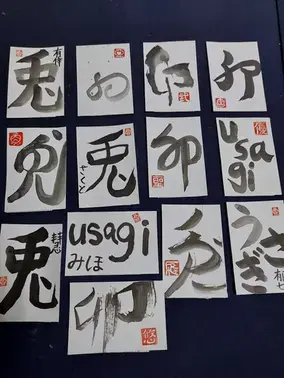 兎
卯
卯
卯
兎
兎
さくと
卯
usagi
兎
usagi
みほ
兎
うさぎ
卯